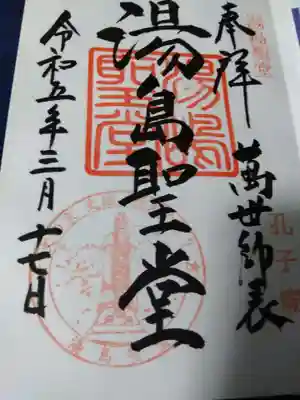 奉拝 萬世師表
湯島聖堂
令和五年三月十七日
湯島聖堂
孔子